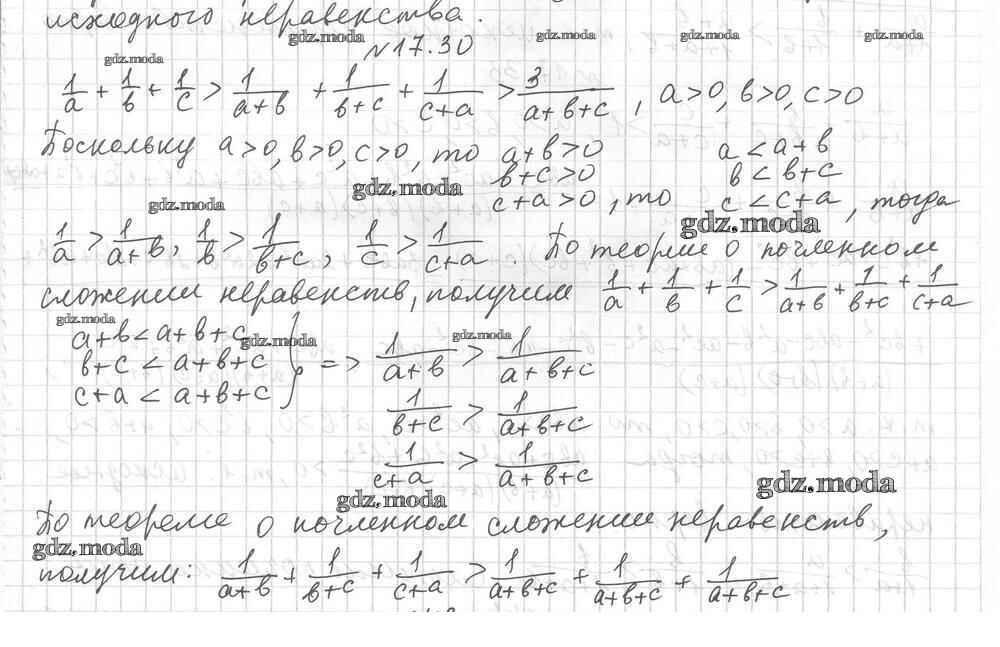 исходного неравенства.
gdz.moda gdz.moda gdz.moda gdz.moda
№17.30
gdz.moda
1/a + 1/в + 1/c > 1/(a+в) + 1/(в+c) + 1/(c+a) > 3/(a+в+c), a>0, в>0, c>0
Поскольку a>0, в>0, c>0, то a+в>0 a<a+в
в+c>0 в<в+c
gdz.moda
c+a>0, то c<c+a, тогда
gdz.moda gdz.moda
1/a > 1/(a+в), 1/в > 1/(в+c), 1/c > 1/(c+a) По теории о почленном
сложении неравенств, получим 1/a + 1/в + 1/c > 1/(a+в) + 1/(в+c) + 1/(c+a)
gdz.moda gdz.moda gdz.moda
a+в<a+в+c
в+c<a+в+c } => 1/(a+в) > 1/(a+в+c)
c+a<a+в+c
1/(в+c) > 1/(a+в+c)
1/(c+a) > 1/(a+в+c)
gdz.moda gdz.moda
По теореме о почленном сложении неравенств,
gdz.moda
получим: 1/(a+в) + 1/(в+c) + 1/(c+a) > 1/(a+в+c) + 1/(a+в+c) + 1/(a+в+c)